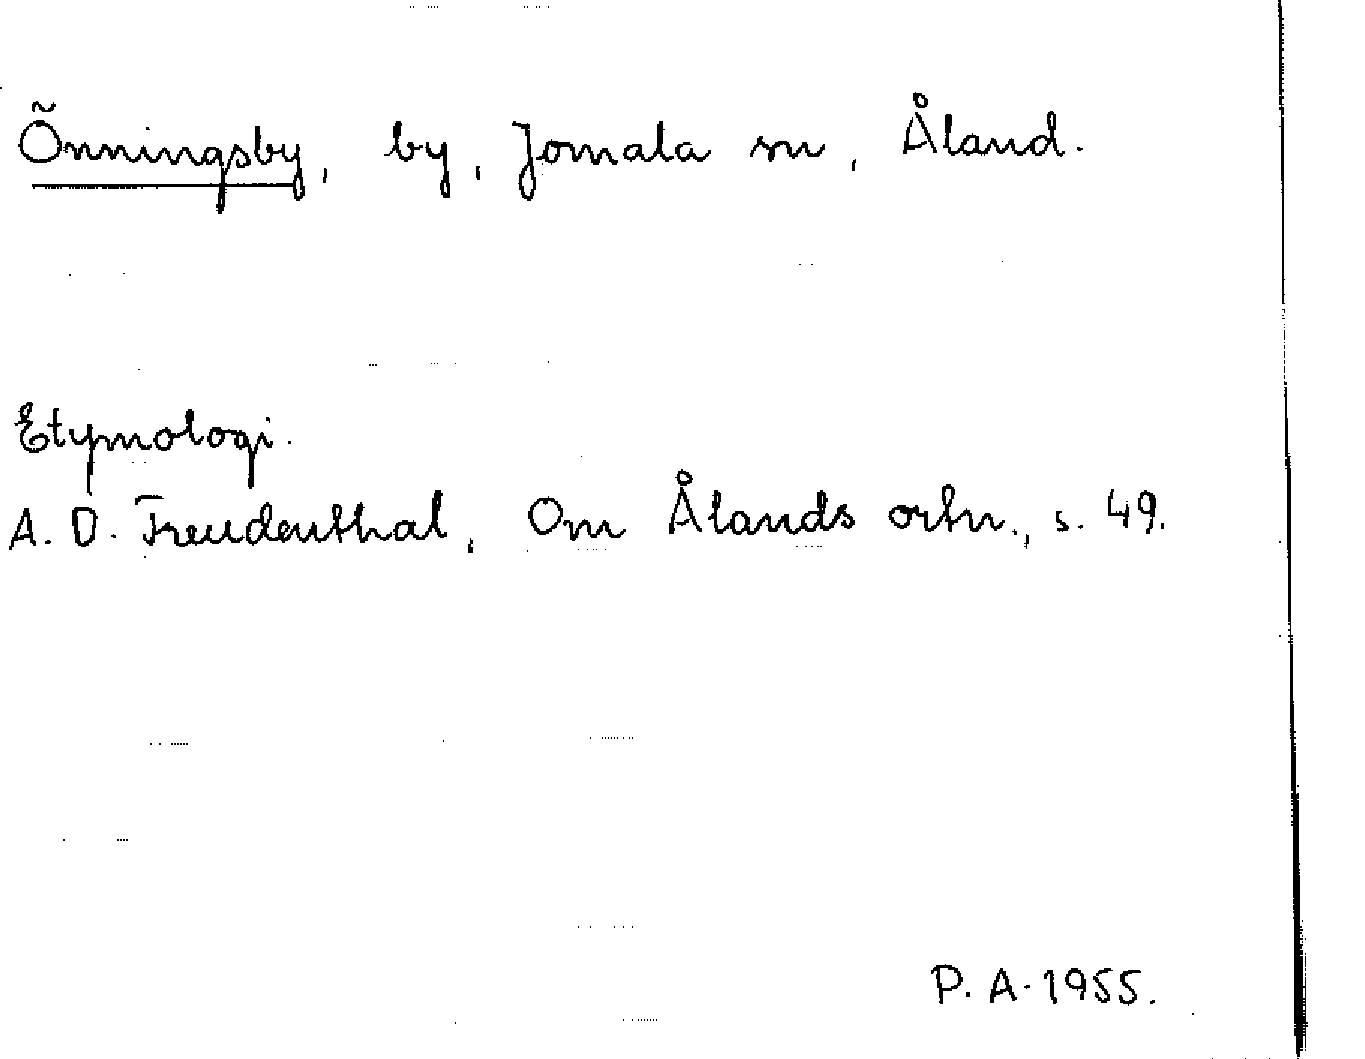 Önningsby, by, Jomala sn, Åland.
Etymologi.
A. O. Freudenthal, Om Ålands ortn., s. 49.
P. A. 1955.